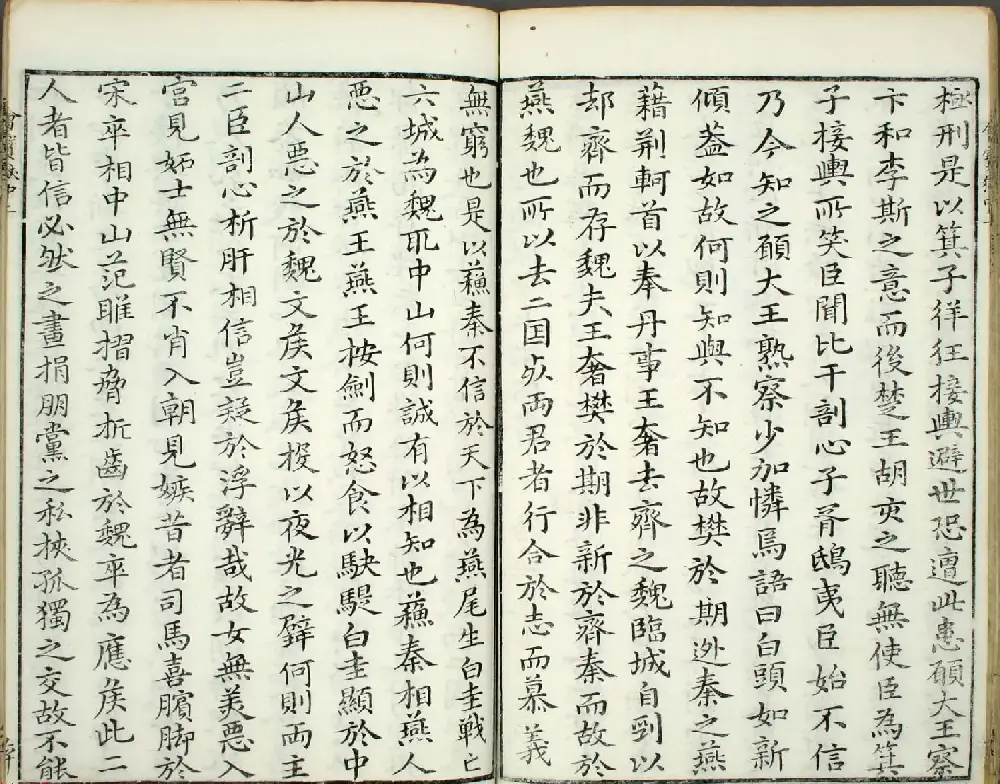 極刑是以箕子徉狂接輿避世恐遭此患願大王察
卞和李斯之意而後楚王胡亥之聽無使臣為箕
子接輿所笑臣聞比干剖心子胥鴟夷臣始不信
乃今知之願大王熟察少加憐焉語曰白頭如新
傾盖如故何則知與不知也故樊於期迯秦之燕
藉荆軻首以奉丹事王奢去齊之魏臨城自刭以
却齊而存魏夫王奢樊於期非新於齊秦而故於
燕魏也所以去二囯死兩君者行合於志而慕義
無窮也是以蘓秦不信於天下為燕尾生白圭戰亡
六城為魏取中山何則誠有以相知也蘓秦相燕人
惡之於燕王燕王按劍而怒食以駃騠白圭顯於中
山人惡之於魏文矦文矦投以夜光之璧何則兩主
二臣剖心析肝相信豈疑於浮辭哉故女無美惡入
宫見妬士無賢不肖入朝見嫉昔者司馬喜臏脚於
宋卒相中山范雎摺脅折齒於魏卒為應矦此二
人者皆信必然之畫捐朋黨之私挾孤獨之交故不能